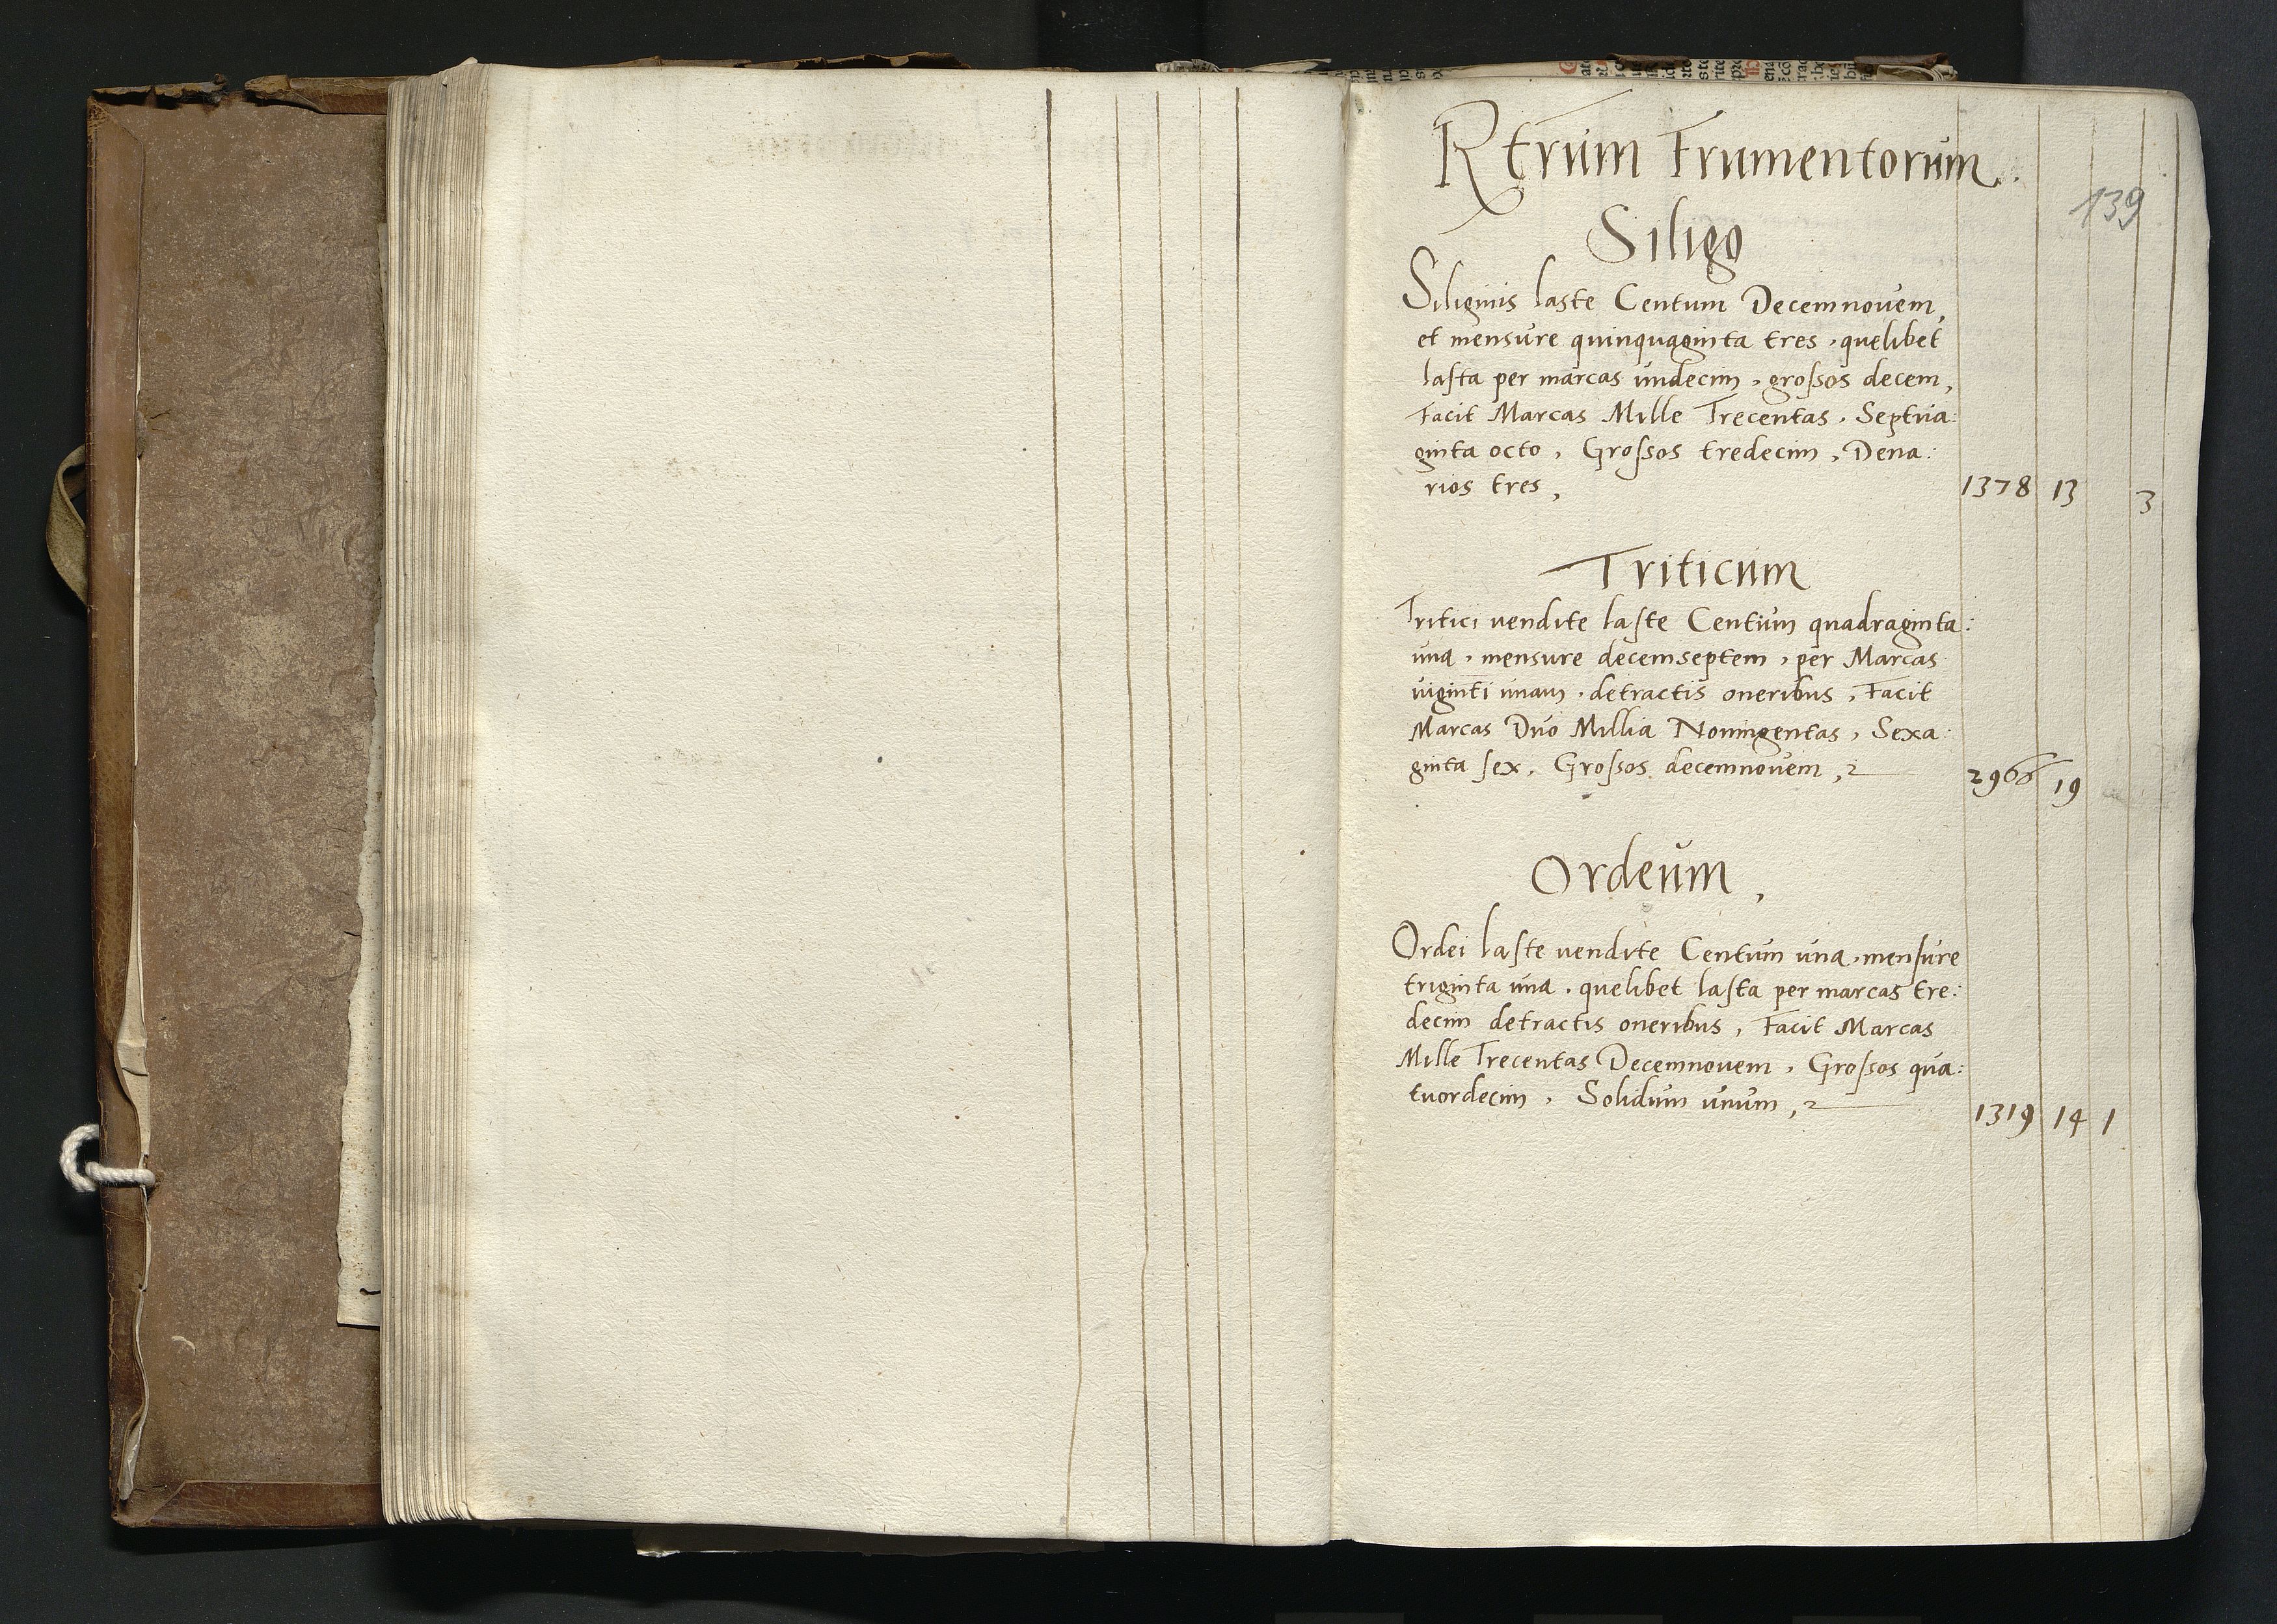 Rtrum Frumentorum.
139
Siligo
Siliginis laste Centum Decemnovem,
et mensure quinquaginta tres, quelibet
laſta per marcas undecim, groſsos decem,
Facit Marcas Mille Trecentas, Septua:
ginta octo, Groſsos tredecim, Dena:
rios tres, 1378 13 3
Triticum
Tritici vendite laſte Centum quadraginta:
una, mensure decemseptem, per Marcas
viginti unam, detractis oneribus, Facit
Marcas Duo Millia Noningentas, Sexa:
ginta ſex, Groſsos decemnovem, 2966 19
Ordeum,
Ordei laſte vendite Centum una, menſure
triginta una, quelibet laſta per marcas tre:
decim detractis oneribus, Facit Marcas
Mille Trecentas Decemnouem, Groſsos qua:
tuordecim, Solidum unum, 1319 14 1